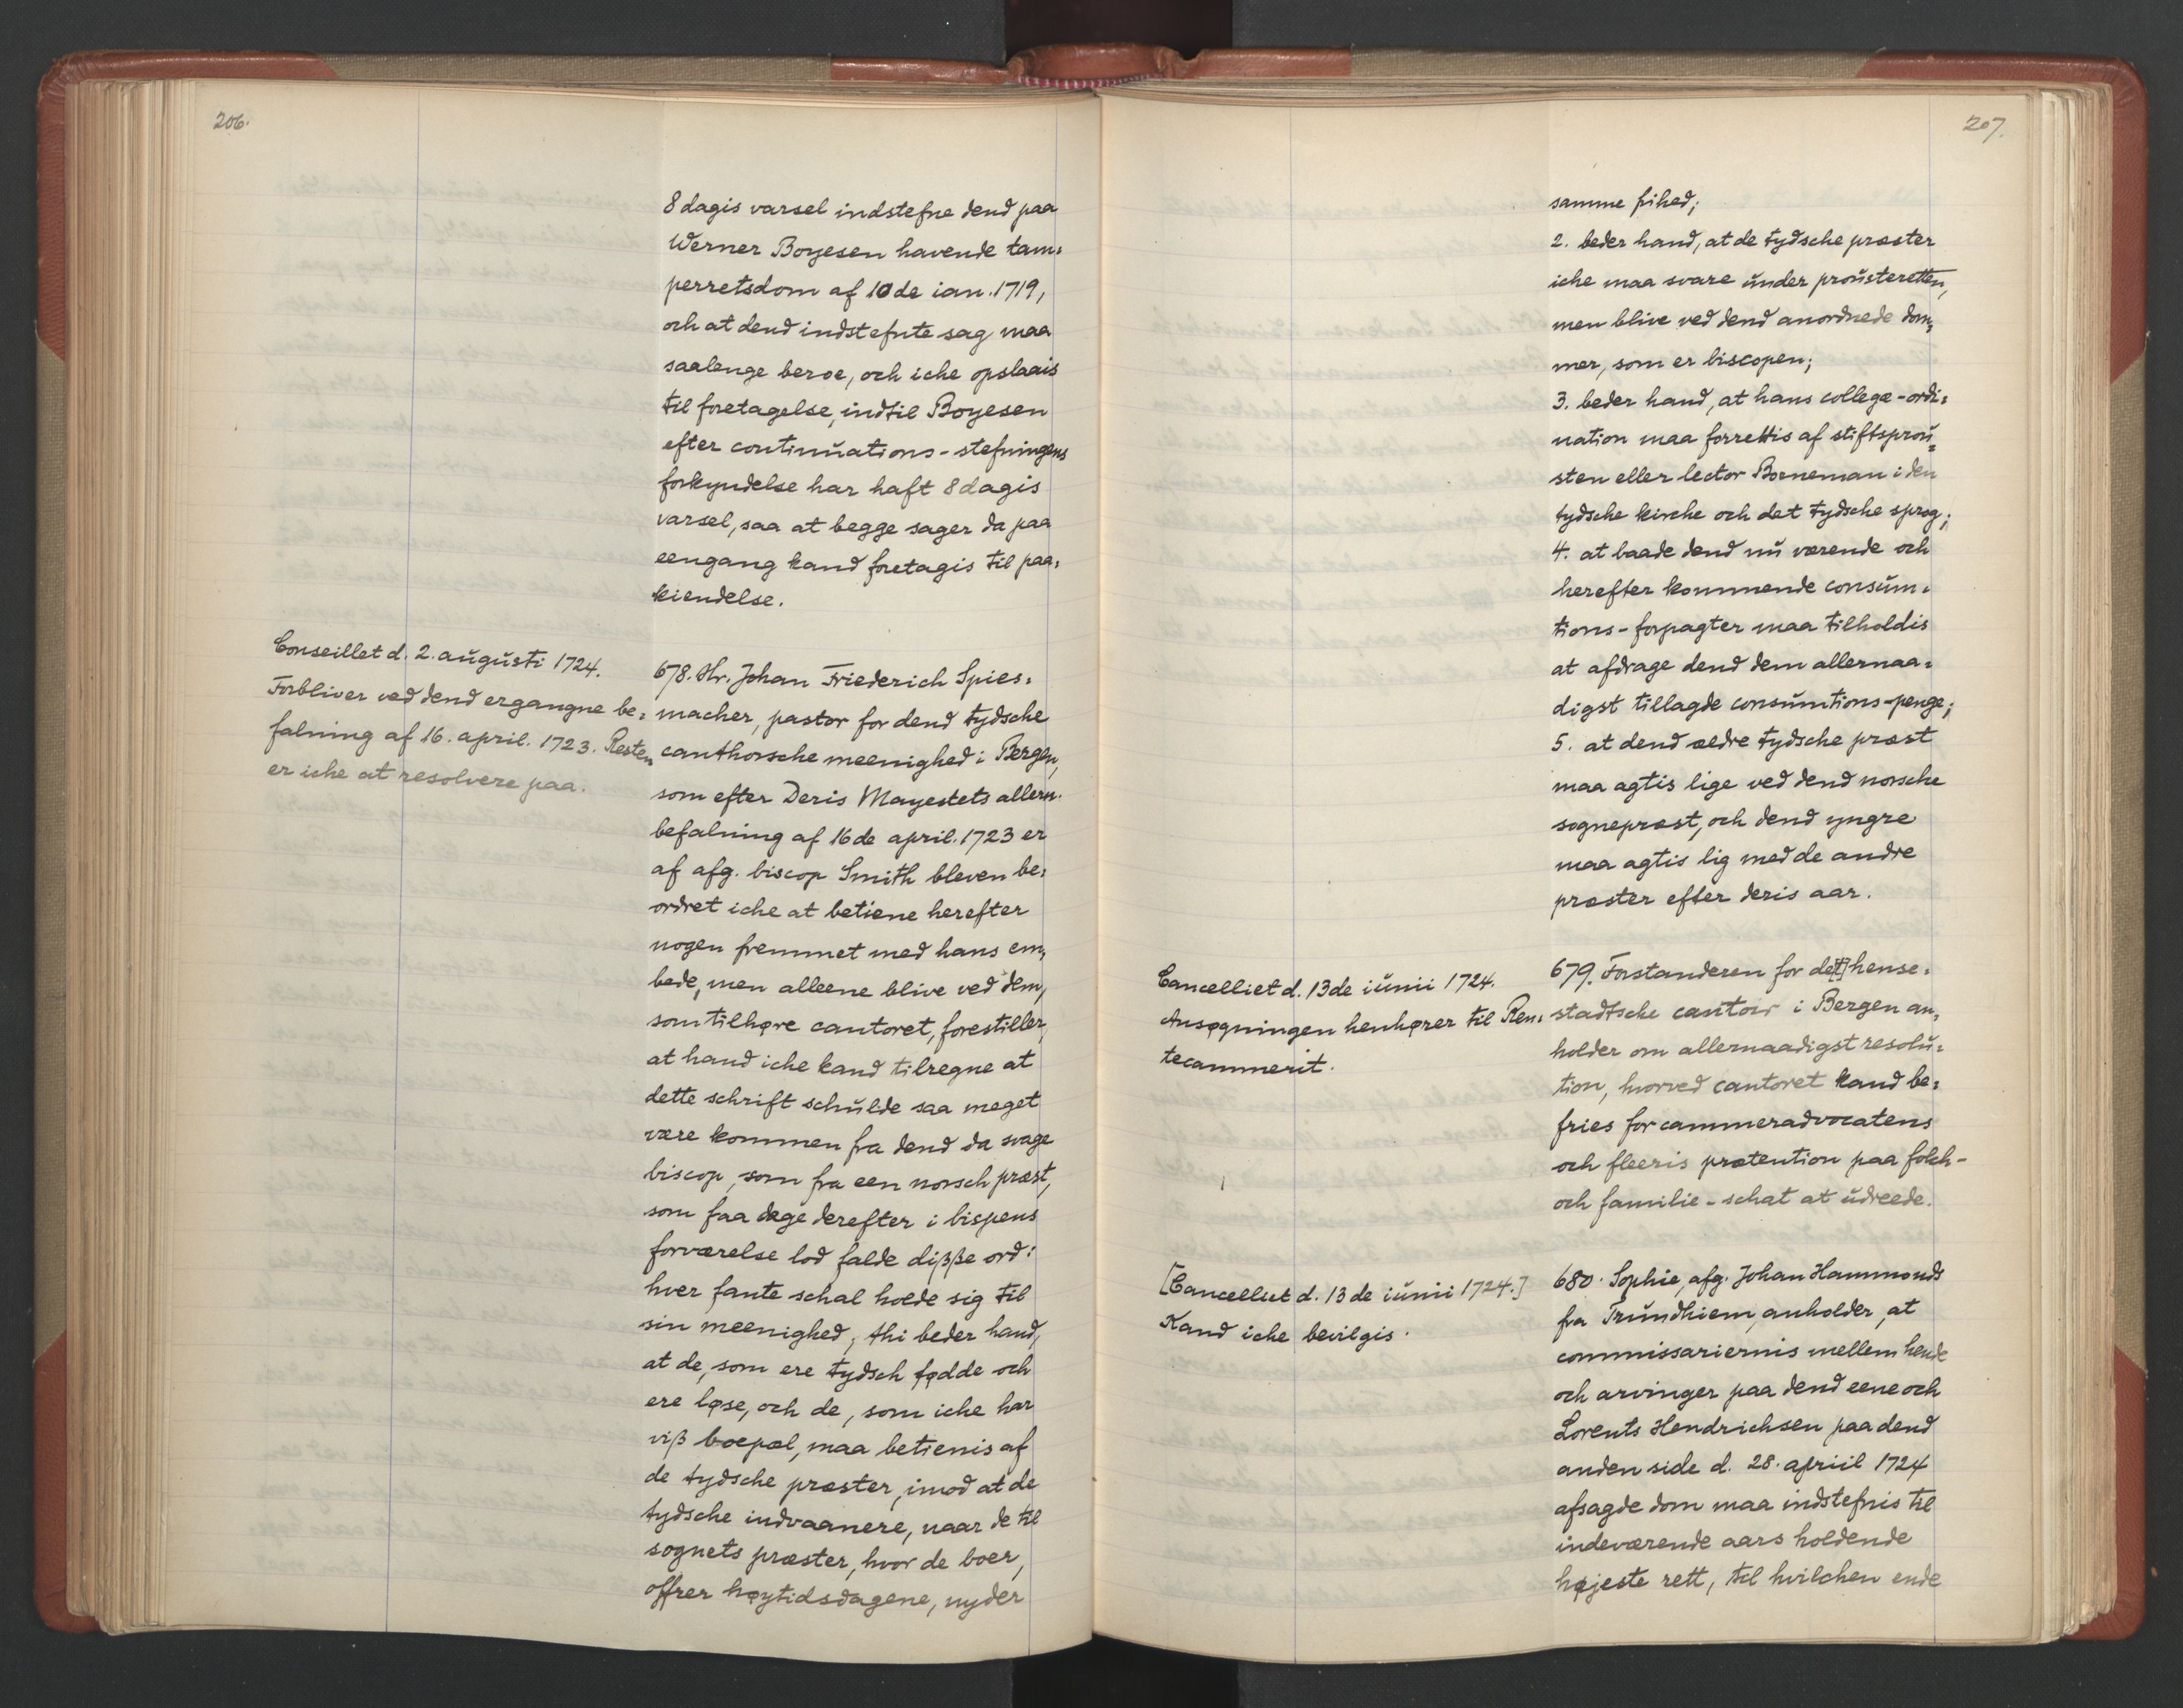 206.
8 dagis varsel indstefne dend paa
Werner Boyesen havende tam=
perretsdom af 10 de ian. 1719,
och at dend indstefnte sag maa
saalenge beroe, och iche opslaais
til foretagelse, indtil Boyesen
efter continŭations-stefningens
forkyndelse har haft 8 dagis
varsel, saa at begge sager da paa
eengang kand foretagis til paa=
kiendelse.
Conseillet d. 2. aŭgŭsti 1724.
Forbliver ved dend ergangne be=
falning af 16. april. 1723. Resten
er iche at resolvere paa.
678. Hr. Johan Friederich Spies=
macher, pastor for dend tydsche
canthorsche meenighed i Bergen,
som efter Deris Mayestets allern.
befalning af 16 de april. 1723 er
af afg. biscop Smith bleven be=
ordret iche at betiene herefter
nogen fremmet med hans em=
bede, men alleene blive ved dem,
som tilhøre cantoret, forestiller,
at hand iche kand tilregne at
dette schrift schŭlde saa meget
være kommen fra dend da svage
biscop, som fra een norsch præst,
som faa dage derefter i bispens
forværelse lod falde dißße ord:
hver fante schal holde sig til
sin meenighed, thi beder hand,
at de, som ere tydsch fødde och
ere løse, och de, som iche har
viß boepæl, maa betienis af
de tydsche præster, imod at de
tydsche indvaanere, naar de til
sognets præster, hvor de boer,
offrer høytidsdagene, nyder
207.
samme frihed;
2. beder hand, at de tydsche præster
iche maa svare ŭnder proŭsteretten,
men blive ved dend anordnede dom=
mer, som er biscopen;
3. beder hand, at hans collegæ-ordi=
nation maa forrettis af stiftsproŭ=
sten eller lector Borneman i den
tydsche kirche och det tydsche sprog;
4. at baade dend nŭ værende och
herefter kommende consŭm=
tions-forpagter maa tilholdis
at afdrage dend dem allernaa=
digst tillagde consŭmtions-penge;
5. at dend ældre tydsche præst
maa agtis lige ved dend norsche
sognepræst, och dend yngre
maa agtis lig med de andre
præster efter deris aar.
Cancelliet d. 13 de iŭnii 1724.
Ansøgningen henhører til Ren=
tecammerit.
679. Forstanderen for de[t] hense=
stadtsche cantoir i Bergen an=
holder om allernaadigst resolŭ=
tion, hvorved cantoret kand be=
fries for cammeradvocatens
och fleeris prætention paa folch-
och familie-schat at ŭdreede.
[Cancelliet d. 13 de iŭnii 1724.]
Kand iche bevilgis.
680. Sophie, afg. Johan Hammonds
fra Trŭndhiem, anholder, at
commissariernis mellem hende
och arvinger paa dend eene och
Lorents Hendrichsen paa dend
anden side d. 28. apriil 1724
afsagde dom maa indstefnis til
indeværende aars holdende
højeste rett, til hvilchen ende